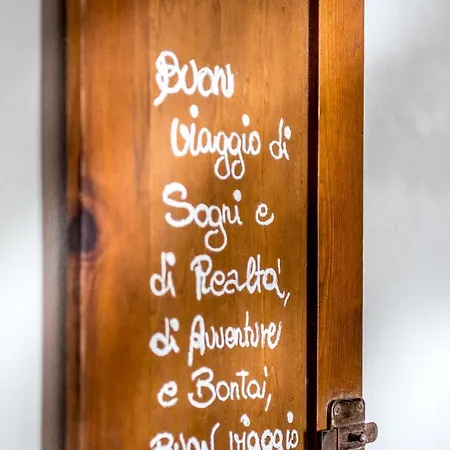 BUON
viaggio di
Sogni e
di Realtà,
di Avventure
e Bontà,
BUON viaggio